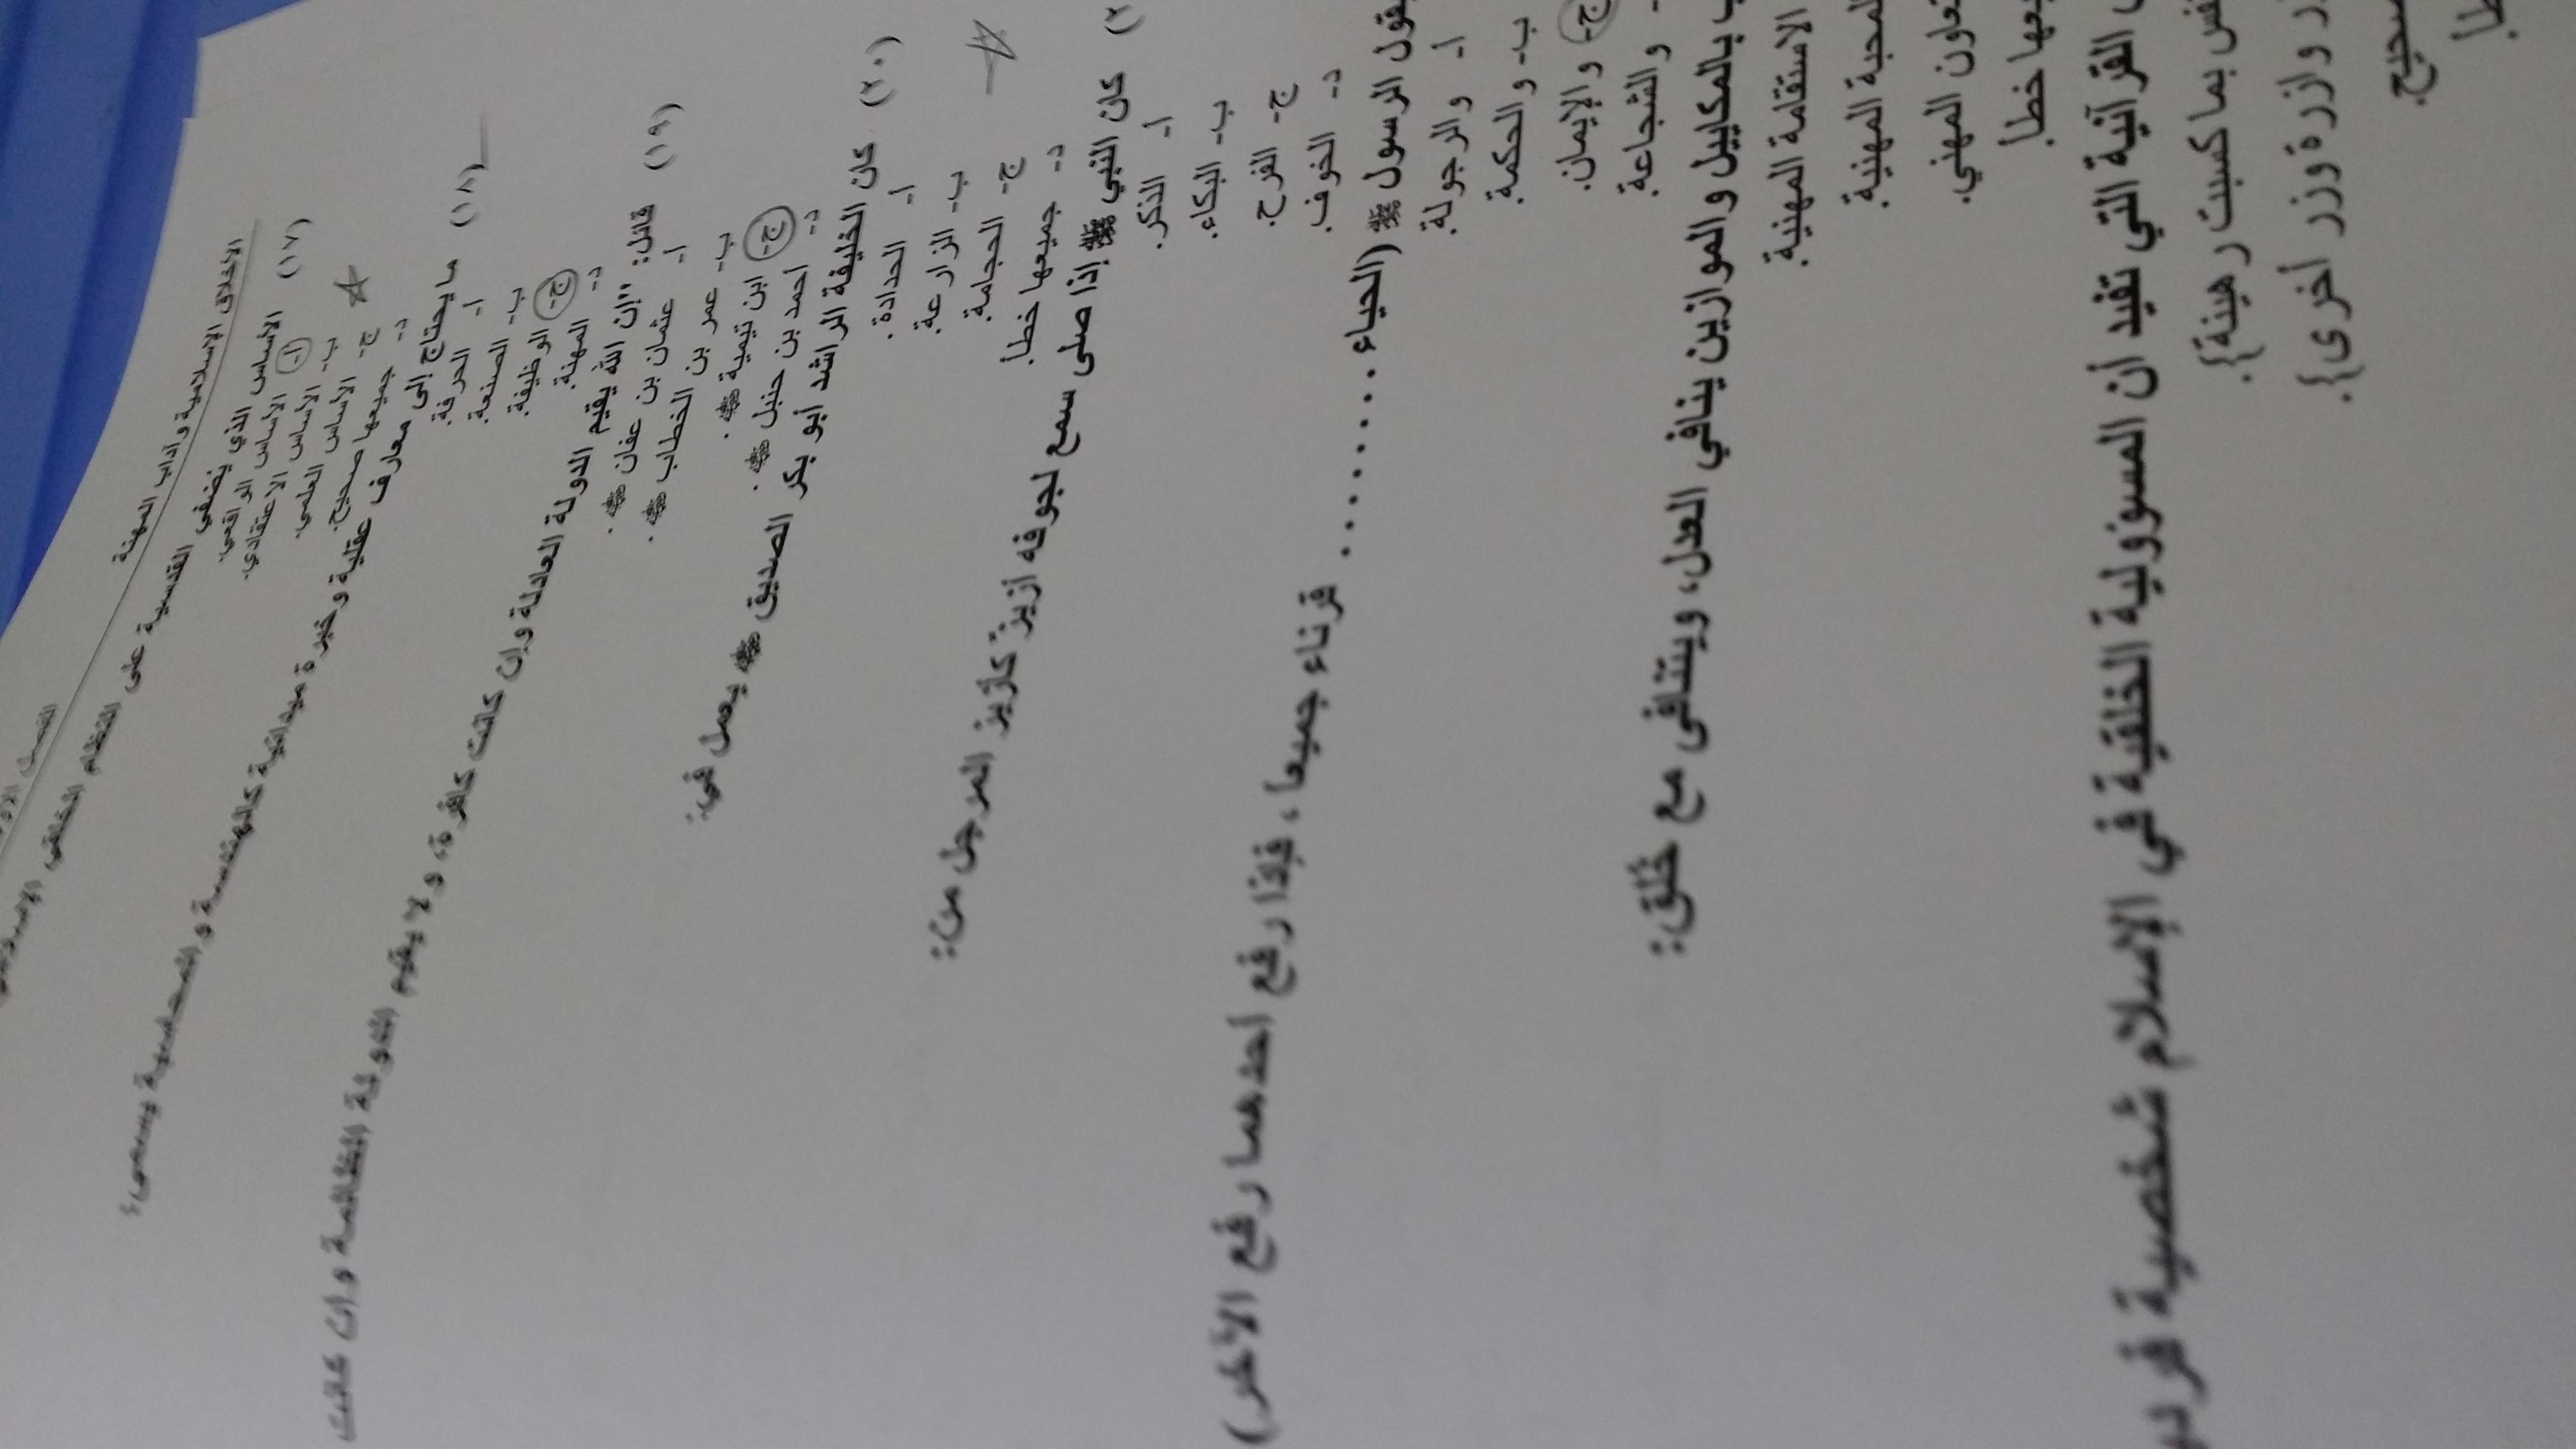 الأخلاق الإسلامية وآداب المهنة
الفصل
(١٧) الأساس الذي يضفي القدسية على النظام الخلقي الإسلامي
أ- الأساس الواقعي.
ب- الأساس الاعتقادي.
ج- الأساس العلمي.
د- جميعها صحيح.
(١٨) ما يحتاج إلى معارف عقلية وخبرة ميدانية كالهندسة والمحاسبة يسمى:
أ- الحرفة.
ب- الصنعة.
ج- الوظيفة.
د- المهنة.
(١٩) قائل: "إن الله يقيم الدولة العادلة وإن كانت كافرة، ولا يقيم الدولة الظالمة وإن كانت
أ- عثمان بن عفان ﷺ.
ب- عمر بن الخطاب ﷺ.
ج- ابن تيمية ﷺ.
د- أحمد بن حنبل ﷺ.
(٢٠) كان الخليفة الراشد أبو بكر الصديق ﷺ يعمل في:
أ- الحدادة.
ب- الزراعة.
ج- الحجامة.
د- جميعها خطأ.
كان النبي ﷺ إذا صلى سمع لجوفه أزيز كأزيز المرجل من:
أ- الذكر.
ب- البكاء.
ج- الفرح.
د- الخوف.
يقول الرسول ﷺ (الحياء ........ قرناء جميعا، فإذا رفع أحدهما رفع الآخر)
أ- والرجولة.
ب- والحكمة.
ج- والإيمان.
- والشجاعة.
بالمكاييل والموازين ينافي العدل، ويتنافى مع خُلق:
الاستقامة المهنية.
المحبة المهنية.
التعاون المهني.
جميعها خطأ.
القرآنية التي تفيد أن المسؤولية الخلقية في الإسلام شخصية
نفس بما كسبت رهينة}.
وازرة وزر أخرى}.
صحيح.
خطأ.